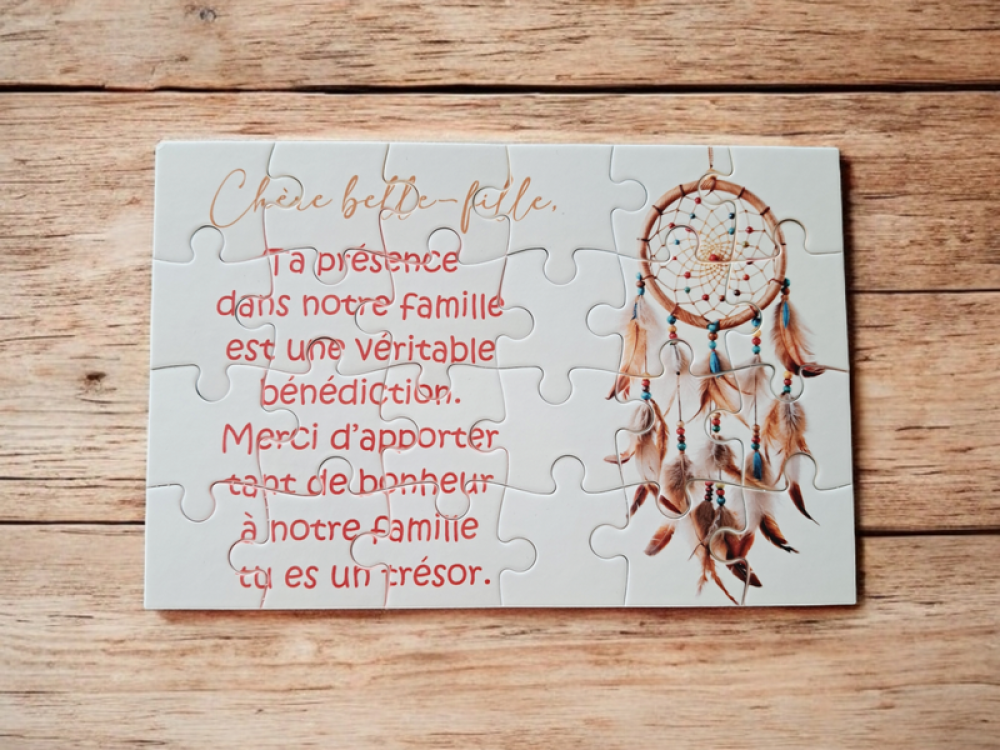 Chère belle-fille,
Ta présence
dans notre famille
est une véritable
bénédiction.
Merci d'apporter
tant de bonheur
à notre famille
tu es un trésor.